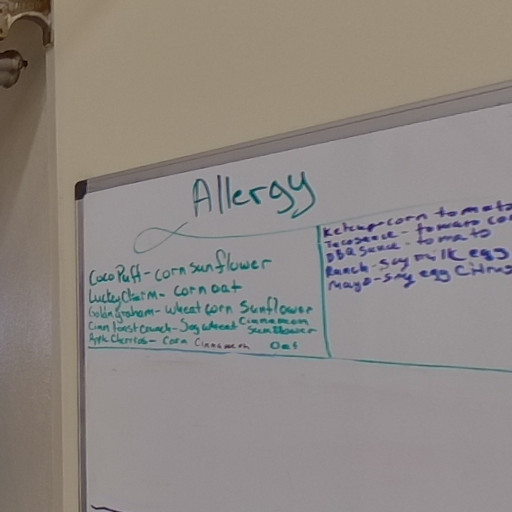 Allergy
Coco Puff - corn sunflower
Lucky Charm - corn oat
Goldn graham - wheat corn Sunflower
Cinn toast crunch - Soy wheat Cinnamon Sunflower
Apple Cherrios - Corn Cinnamon Oat
Ketchup - corn tomato
Taco sauce - tomato co
BBQ Sauce - tomato
Ranch - Soy milk egg
Mayo - Soy egg Citrus